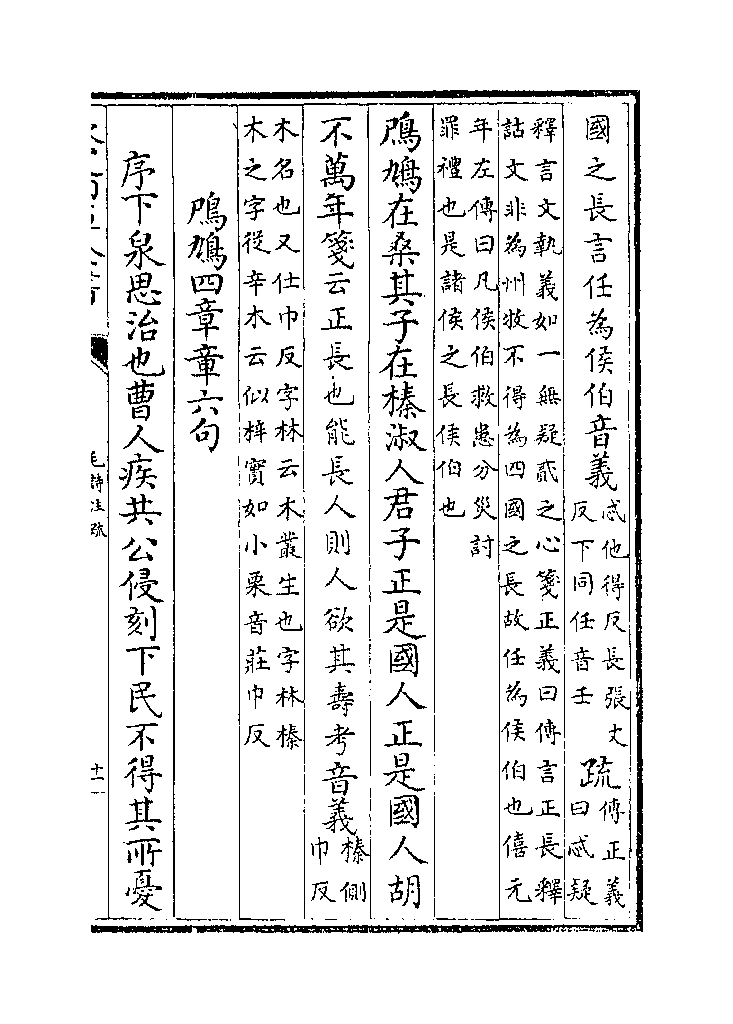 國之長言任為侯伯音義忒他得反長張丈反下同任音壬疏傳正義曰忒疑
釋言文執義如一無疑貳之心箋正義曰傳言正長釋
詁文非為州牧不得為四國之長故任為侯伯也僖元
年左傳曰凡侯伯救患分災討
罪禮也是諸侯之長侯伯也
鳲鳩在桑其子在榛淑人君子正是國人正是國人胡
不萬年箋云正長也能長人則人欲其壽考音義榛側巾反
木名也又仕巾反字林云木叢生也字林榛
木之字從辛木云似梓實如小栗音莊巾反
鳲鳩四章章六句
序下泉思治也曹人疾共公侵刻下民不得其所憂
毛詩注疏
十一